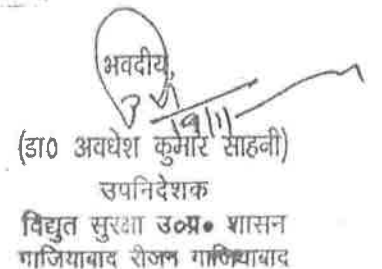 भवदीय,
19/11
(डा0 अवधेश कुमार साहनी)
उपनिदेशक
विद्युत सुरक्षा उ०प्र० शासन
गाजियाबाद रीजन गाजियाबाद